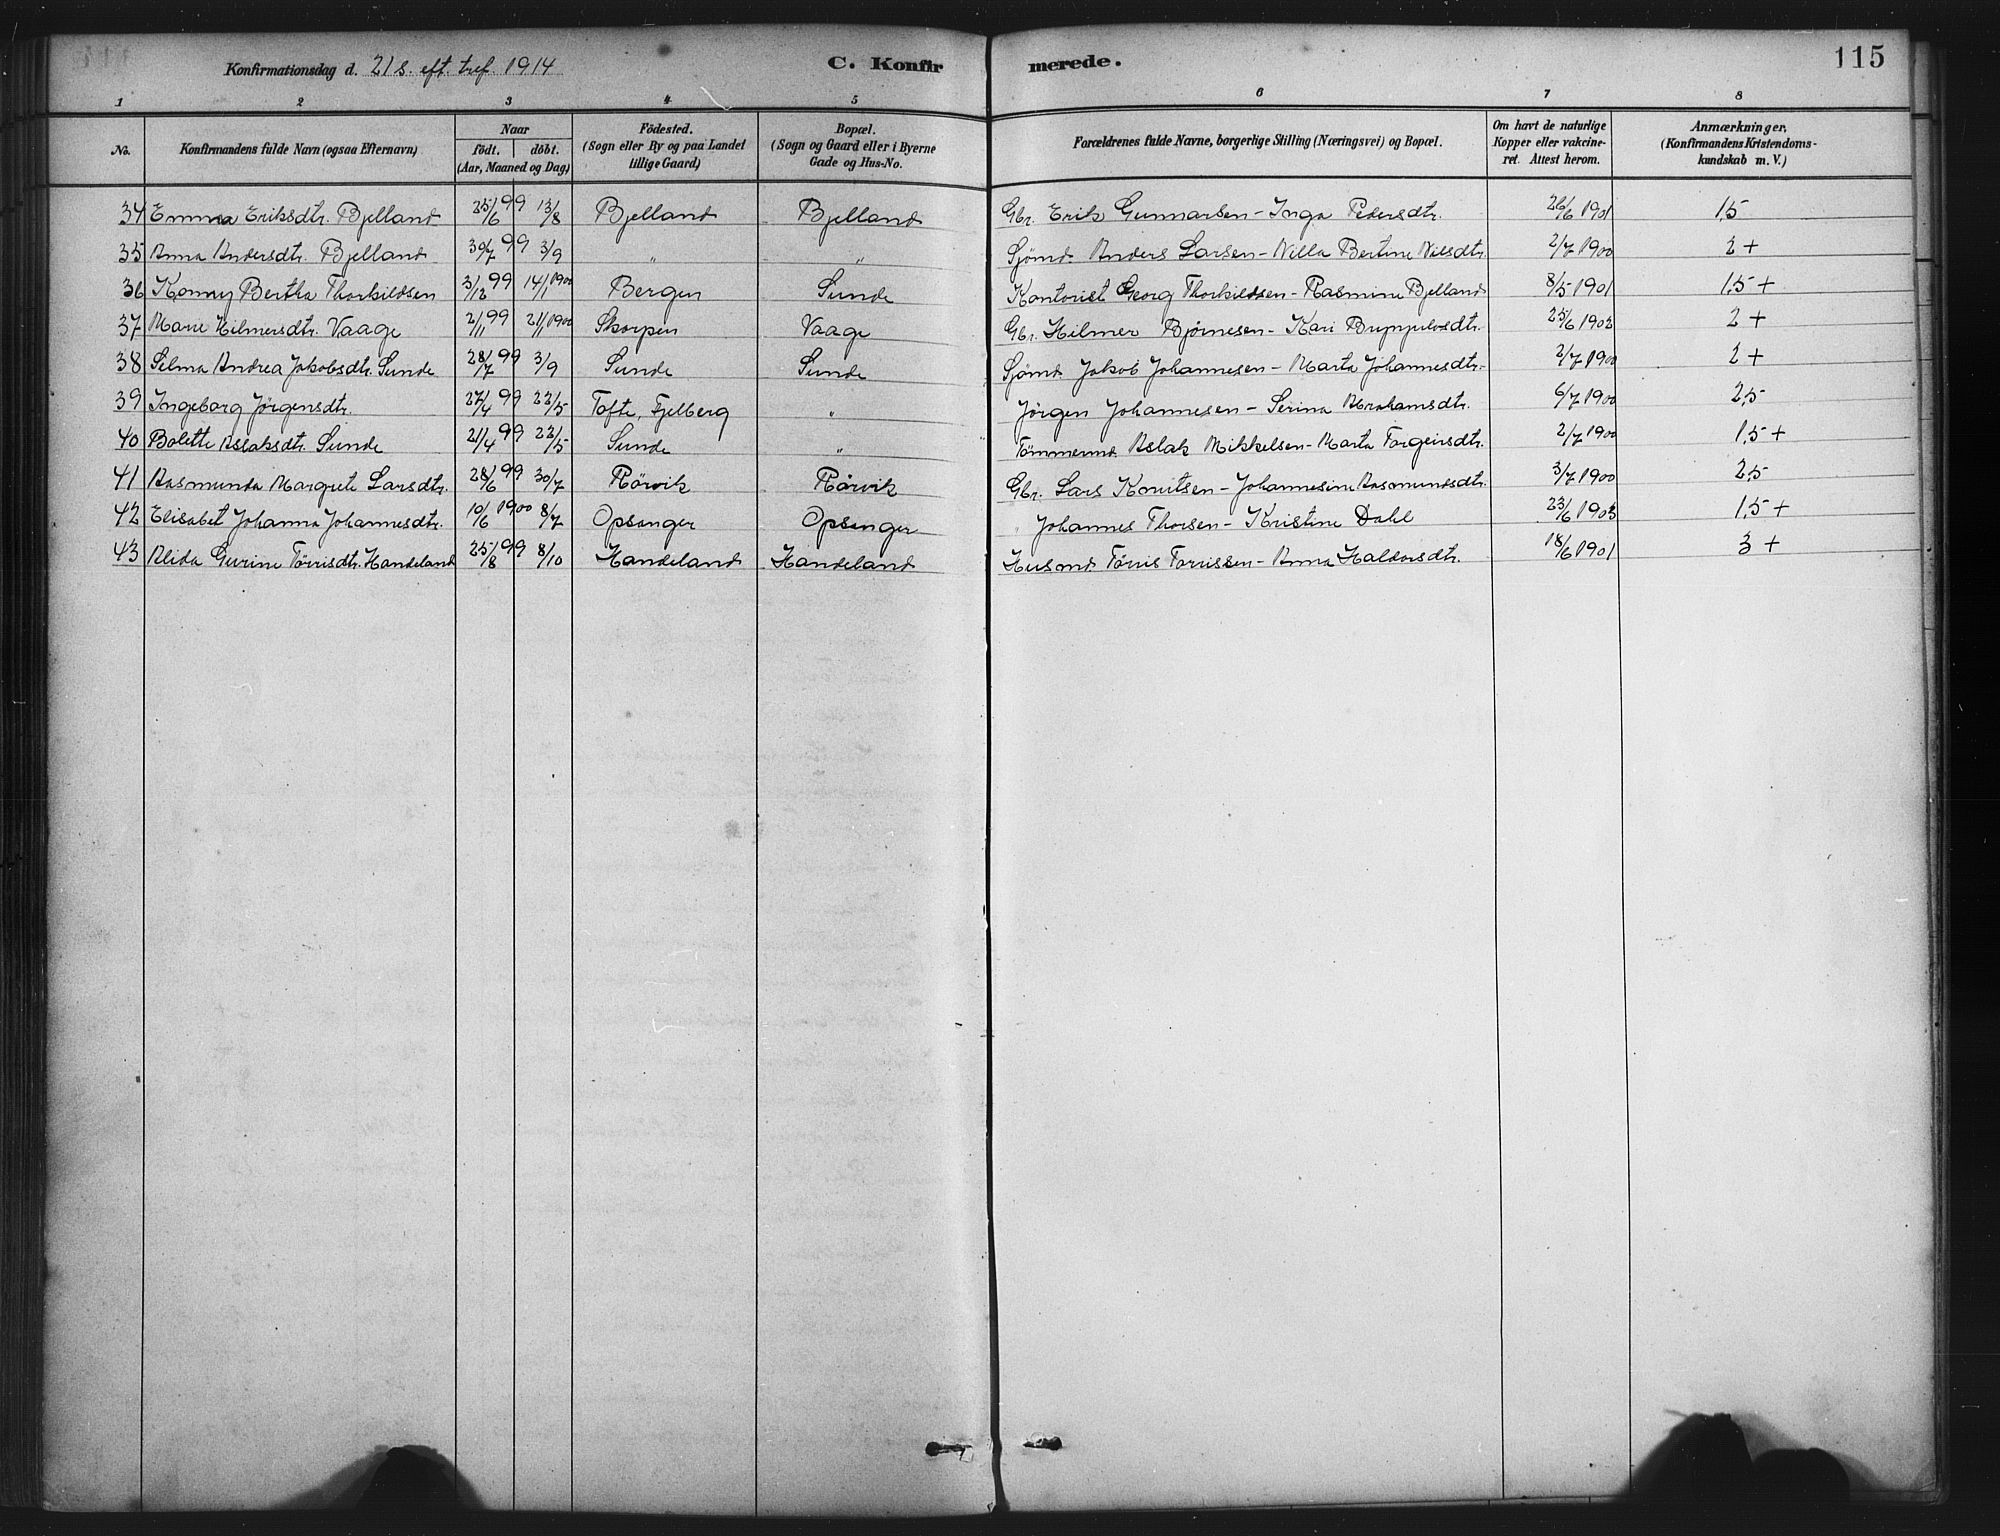 Konfirmationsdag d. 21 s. eft. tref. 1914 C. Konfirmerede. 115
1 2 3 4 5 6 7 8
No. Konfirmandens fulde Navn (ogsaa Efternavn) Naar födt. döbt. (Aar, Maaned og Dag) Födested. (Sogn eller By og paa Landet tillige Gaard) Bopæl. (Sogn og Gaard eller i Byerne Gade og Hus-No. Forældrenes fulde Navne, borgerlige Stilling (Næringsvei) og Bopæl. Om havt de naturlige Kopper eller vakcineret. Attest herom. Anmærkninger. (Konfirmandens Kristendomskundskab m. V.)
34 Emma Eriksdtr. Bjelland 25/6 99 13/8 Bjelland Bjelland Gbr. Erik Gunnarsen - Inga Pedersdtr. 26/6 1901 1,5
35 Anna Andersdtr. Bjelland 30/7 99 3/9 " " Sjømd. Anders Larsen - Nilla Bertine Nilsdtr. 2/7 1900 2+
36 Konny Bertha Thorkildsen 3/12 99 14/1 1900 Bergen Sunde Kontorist Georg Thorkildsen - Rasmine Bjelland 8/5 1901 1,5+
37 Marie Hilmersdtr. Vaage 2/11 99 21/1 1900 Skorpen Vaage Gbr. Hilmer Bjørnesen - Kari 25/6 1903 2+
38 Selma Andrea Jakobsdtr. Sunde 28/7 99 3/9 Sunde Sunde Sjømd Jakob Johannesen - Marta Johannesdtr. 2/7 1900 2+
39 Ingeborg Jørgensdtr. 27/4 99 22/5 Tofte, Fjelberg " Jörgen Johannesen - Serina Abrahamsdtr. 6/7 1900 2,5
40 Bolette Aslaksdtr. Sunde 21/4 99 22/5 Sunde " Tömmermd Aslak Mikkelsen - Marta Torgeirsdtr. 2/7 1900 1,5+
41 Aasmunda Margrete Larsdtr. 28/6 99 30/7 Rörvik Rörvik Gbr. Lars Knutsen - Johannesine Aasmundsdtr. 3/7 1900 2,5
42 Elisabet Johanna Johannesdtr. 10/6 1900 8/7 Opsanger Opsanger " Johannes Thorsen - Kristine Dahl 23/6 1903 1,5+
43 Alida Gurine Tørrisdtr. Handeland 25/8 99 8/10 Handeland Handeland Husmd Tørris Tørrissen - Anna Haldorsdtr. 18/6 1901 3+